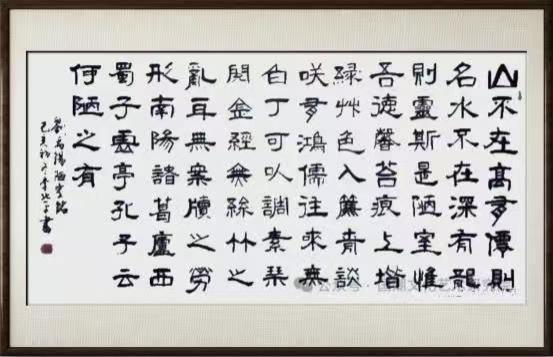 山不在高有僊則
名水不在深有龍
則靈斯是陋室惟
吾德馨苔痕上堦
綠艸色入簾青談
咲有鴻儒往來無
白丁可以調素琴
閱金經無絲竹之
亂耳無案牘之勞
形南陽諸葛廬西
蜀子雲亭孔子云
何陋之有
劉禹錫陋室銘
己亥初冬李書
公众号